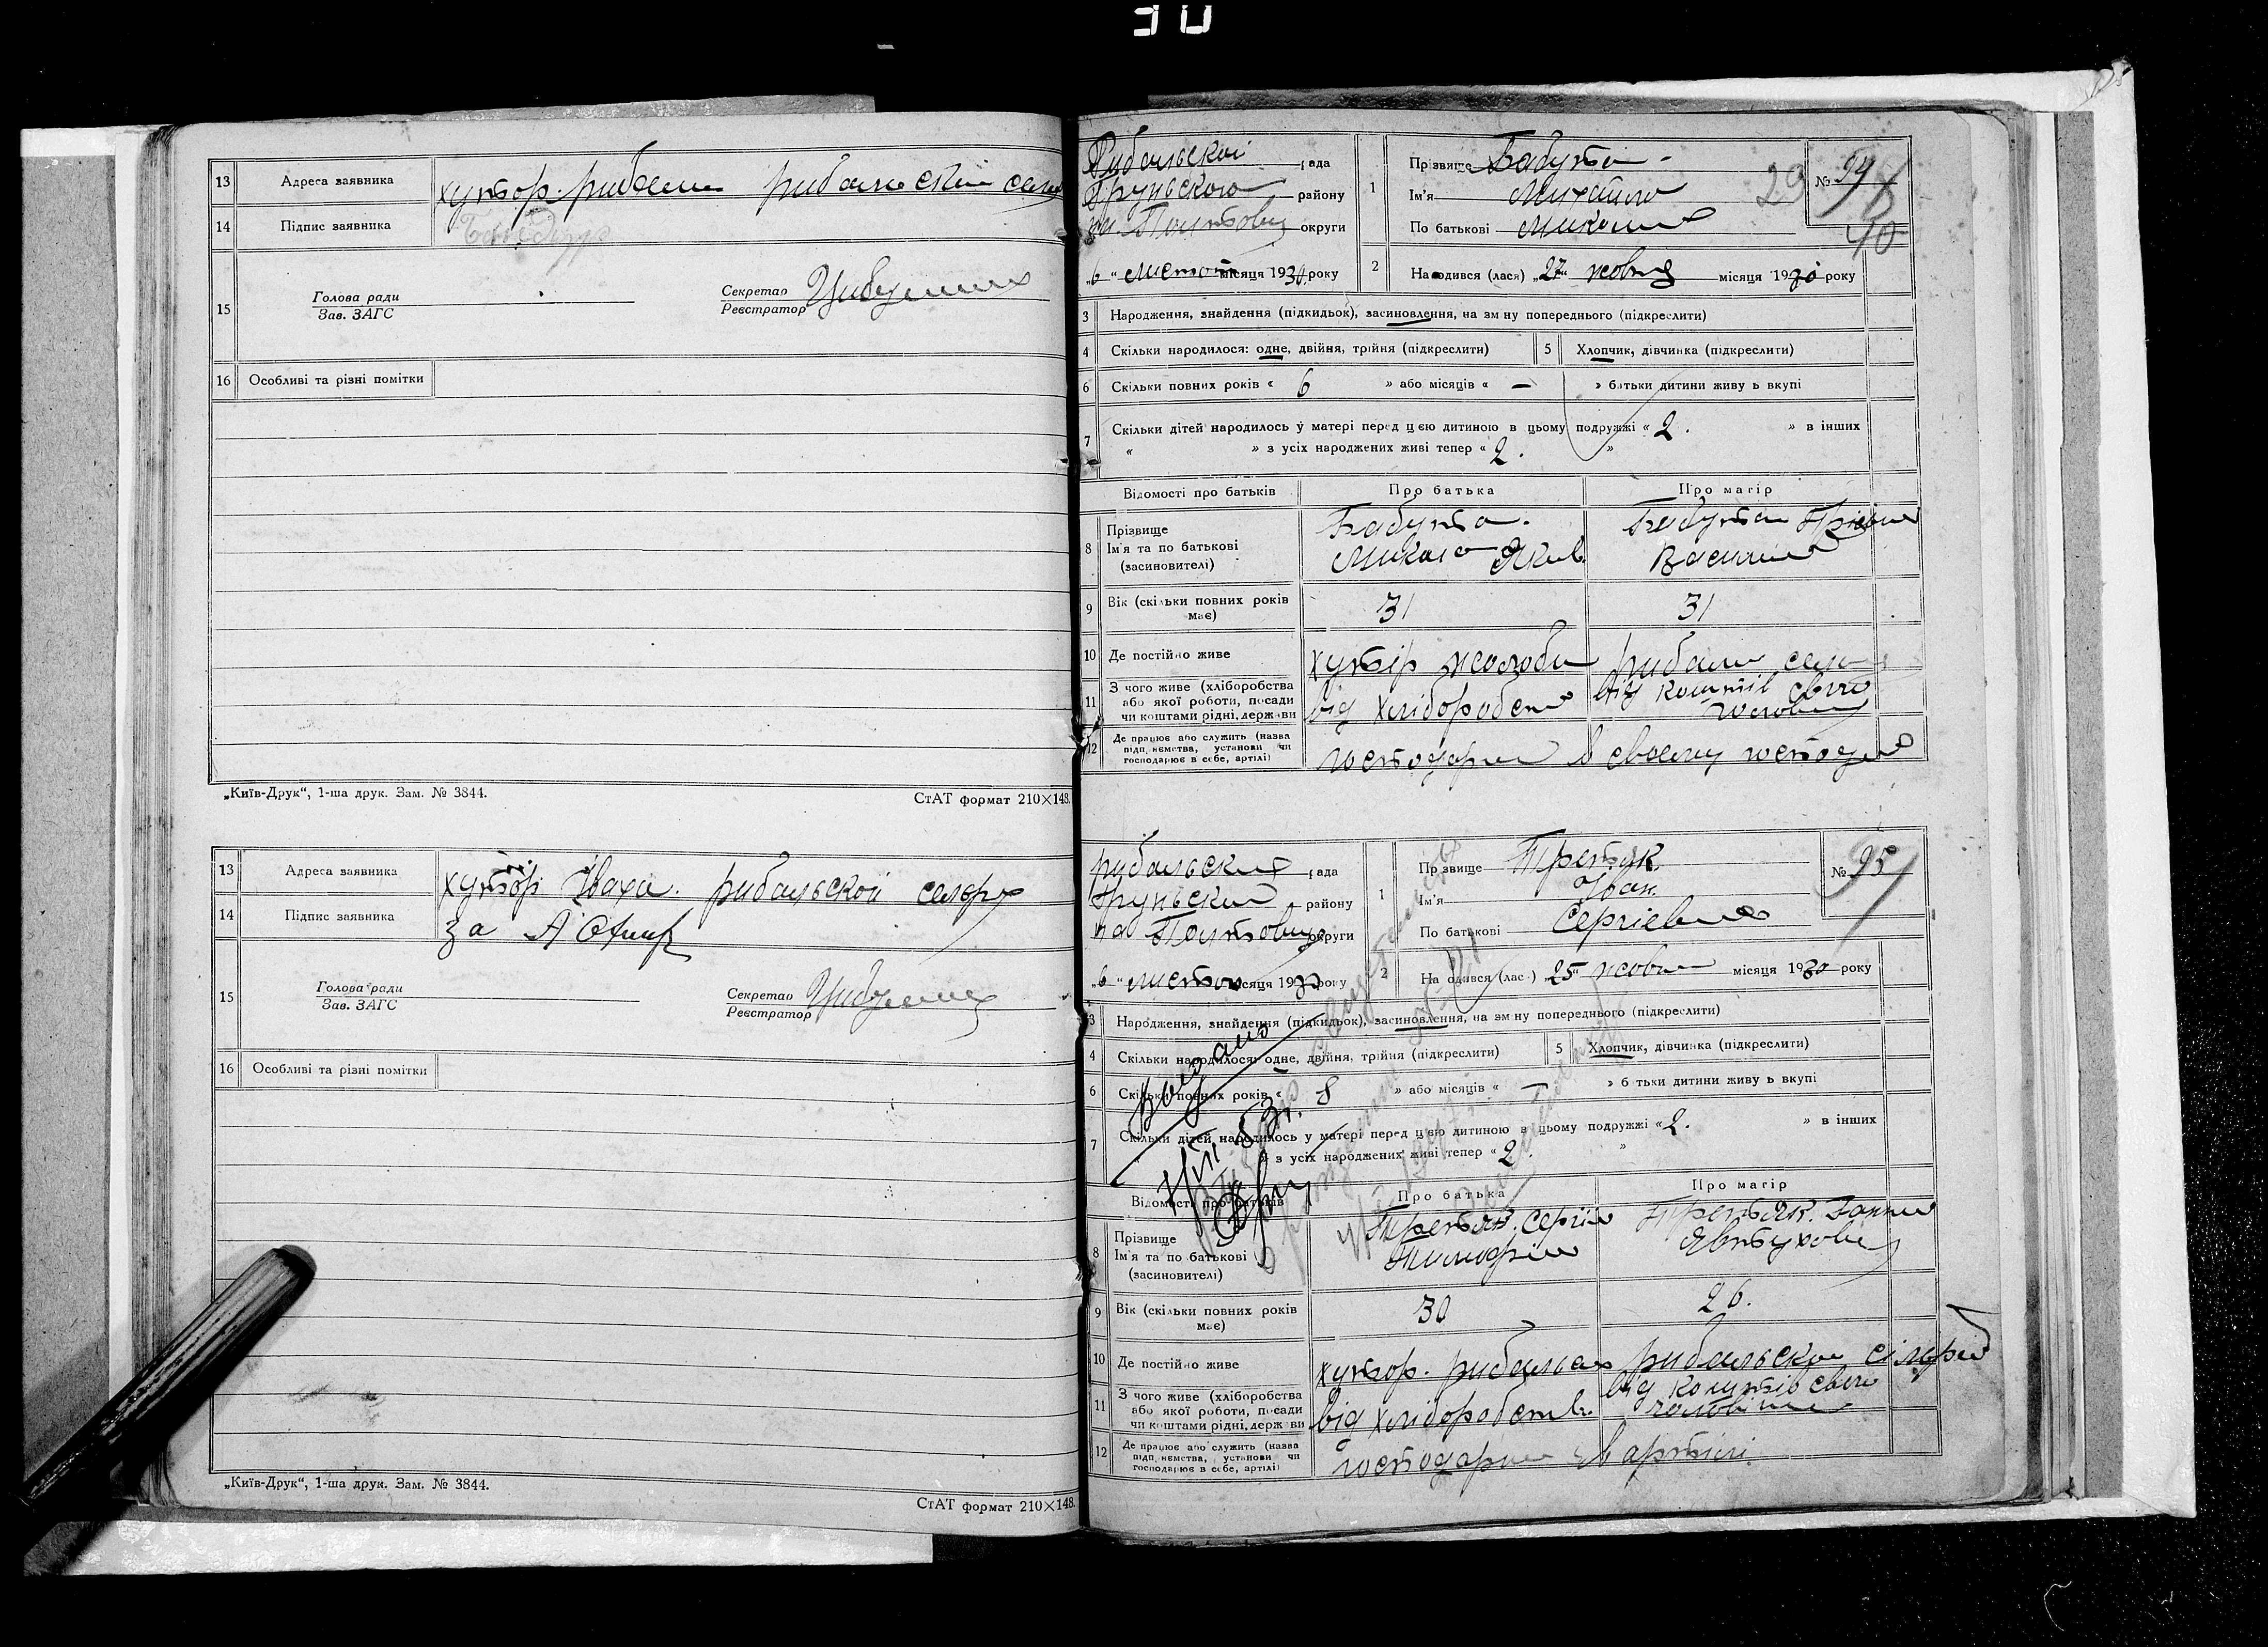 30
13 Адреса заявника хутор. рибалки рибальский
14 Підпис заявника
15 Голова ради
Зав. ЗАГС
Секретар
Реєстратор
16 Особливі та різні помітки
„Київ-Друк“, 1-ша друк. Зам. № 3844.
СтАТ формат 210×148.
13 Адреса заявника хутір Іваха. рибальской
14 Підпис заявника за
15 Голова ради
Зав. ЗАГС
Секретар
Реєстратор
16 Особливі та різні помітки
„Київ-Друк“, 1-ша друк. Зам. № 3844.
СтАТ формат 210×148.
Рибальской рада
Груньского району
на Полтавщ округи
„6“ листоп місяця 1930 року
1 Прізвище Бабута
Ім'я Михайло
По батькові Микол
№ 94
29
40
2 На одився (лася) „27“ жовтня місяця 1930 року
3 Народження, знайдення (підкидьок), засиновлення, на зм ну попереднього (підкреслити)
4 Скільки народилося: одне, двійня, трійня (підкреслити)
5 Хлопчик, дівчинка (підкреслити)
6 Скільки повних років « 6 » або місяців « — » батьки дитини живу ь вкупі
7 Скільки дітей народилось у матері перед цією дитиною в цьому подружжі « 2. » в інших
« » з усіх народжених живі тепер « 2. »
Відомості про батьків Про батька Про матір
8 Прізвище
Ім'я та по батькові
(засиновителі)
Бабута.
Микола Яків.
Бабута
Васил
9 Вік (скільки повних років має) 31 31
10 Де постійно живе хутір жолоби рибалки
11 З чого живе (хліборобства
або якої роботи, посади
чи коштами рідні, держави
від хліборобств
від коштів свого
чоловіка
12 Де працює або служить (назва
підп иємства, установи чи
господарює в себе, артілі)
господарює в своєму господ
рибальский рада
Груньский району
на Полтавщ округи
„6“ листоп місяця 1930 року
1 Пр звище Третяк.
Ім'я Іван.
По батькові Сергієвич
№ 95
2 На одився (лас ) „25“ жовтня місяця 1930 року
3 Народження, знайдення (підкидьок), засиновлення, на зм ну попереднього (підкреслити)
4 Скільки народилося: одне, двійня, трійня (підкреслити)
5 Хлопчик, дівчинка (підкреслити)
6 Скільки повних років « 8 » або місяців « — » б тьки дитини живу ь вкупі
7 Скільки дітей народилось у матері перед цією дитиною в цьому подружжі « 2. » в інших
» з усіх народжених живі тепер « 2. »
Відомості про батьків Про батька Про матір
8 Прізвище
Ім'я та по батькові
(засиновителі)
Третяк. Сергій
Третяк. Ганна
Явтухов
9 Вік (скільки повних років має) 30 26.
10 Де постійно живе хутор. рибальський рибальской
11 З чого живе (хліборобства
або якої роботи, посади
чи коштами рідні, держ ви
від хліборобств.
від коштів свого
чоловіка
12 Де працює або служить (назва
підп иємства, установи чи
господарює в себе, артілі)
господарює в артілі.